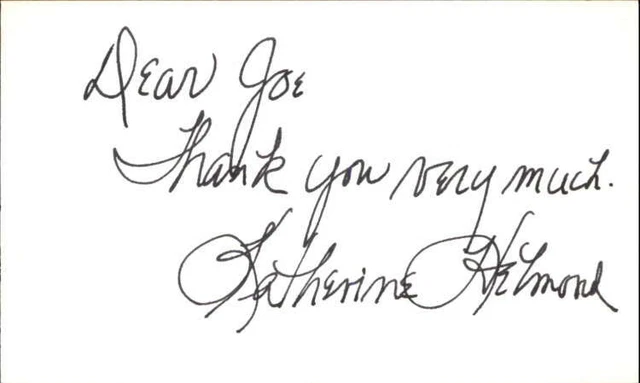 Dear Joe
Thank you very much.
Katherine Helmond